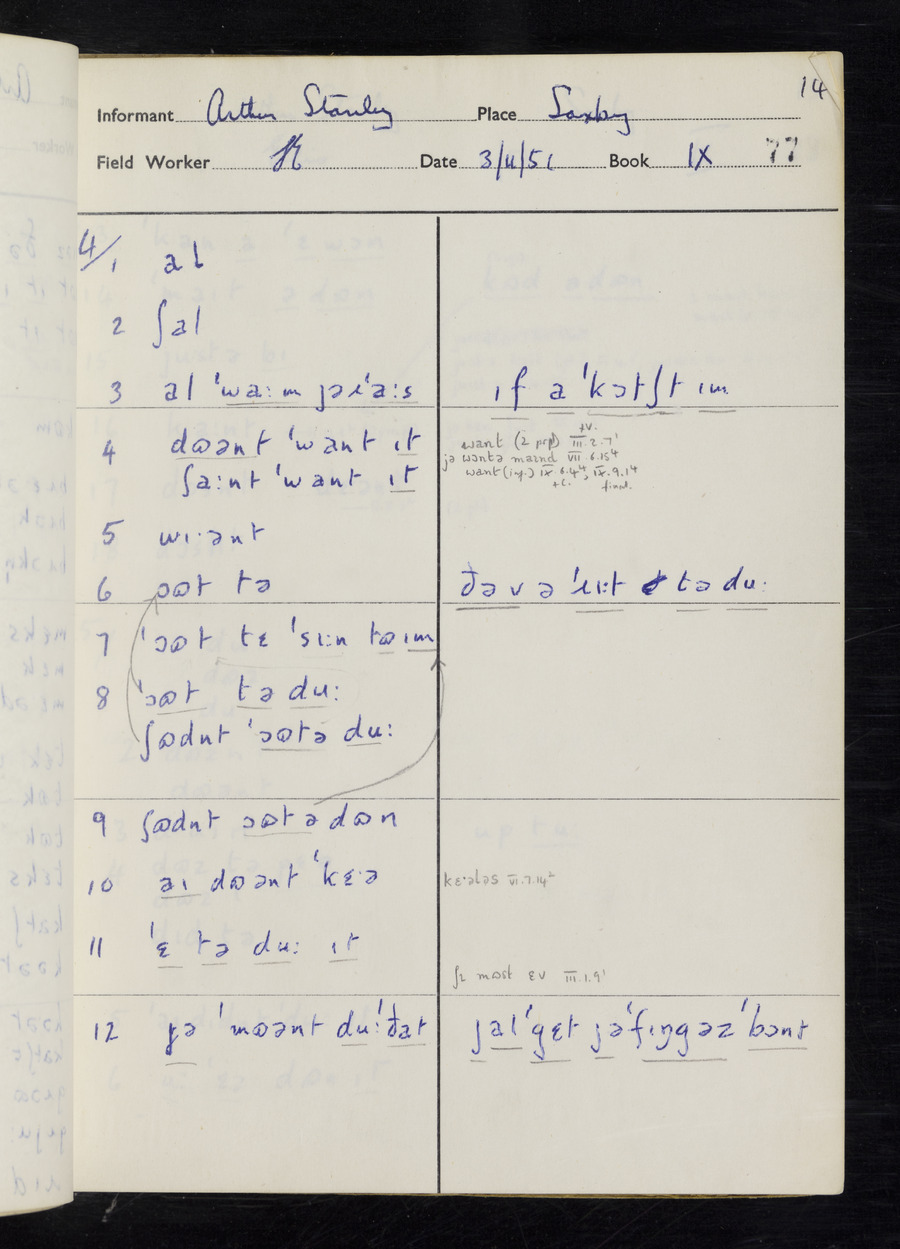 14
Informant Arthur Stanley Place Saxby
Field Worker Date 3/4/51 Book IX 77
4/1 al
2 ʃal
3 al ˈwaːm jəɹˈaːs ɪf a ˈkɔtʃt ɪm
4 dʊənt ˈwant ɪt want (2 prp) III.2.7¹ +v.
ʃaːnt ˈwant ɪt jə wantə maɪnd VII 6.15⁴
want (inf.) IX 6.4⁴, IX.9.14
+c. final.
5 wɪːənt
6 ɔʊt tə ðə v ə ˈɹɪːt tə duː
7 ˈɔʊt tɛ ˈsɪːn tʊ ɪm
8 ˈɔʊt tə duː
ʃʊdnt ˈɔʊtə duː
9 ʃʊdnt ɔʊtə dʊn
10 aɪ dʊənt ˈkɛˑə kɛˑələs VI.7.14²
11 ˈɛ tə duː ɪt
ʃɪ mʊst ɛv III.1.9¹
12 jə ˈmʊənt duː ˈðat jəl ˈgɛt jə ˈfɪŋgəz ˈbɔnt